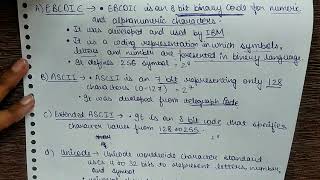 A) EBCDIC → • EBCDIC is an 8 bit binary code for numeric
and alphanumeric characters.
• It was developed and used by IBM
• It is a coding representation in which symbols,
letters and number are presented in binary language
• It defines 256 symbol = 2⁸
B) ASCII → • ASCII is a 7 bit representing only 128
characters (0-127) = 2⁷
• It was developed from telegraph code
C) Extended ASCII → • It is an 8 bit code that specifies
character values from 128 to 255.
= 2⁸
d) Unicode → Unicode worldwide character standard
uses 4 to 32 bits to represent letters, number
and symbol